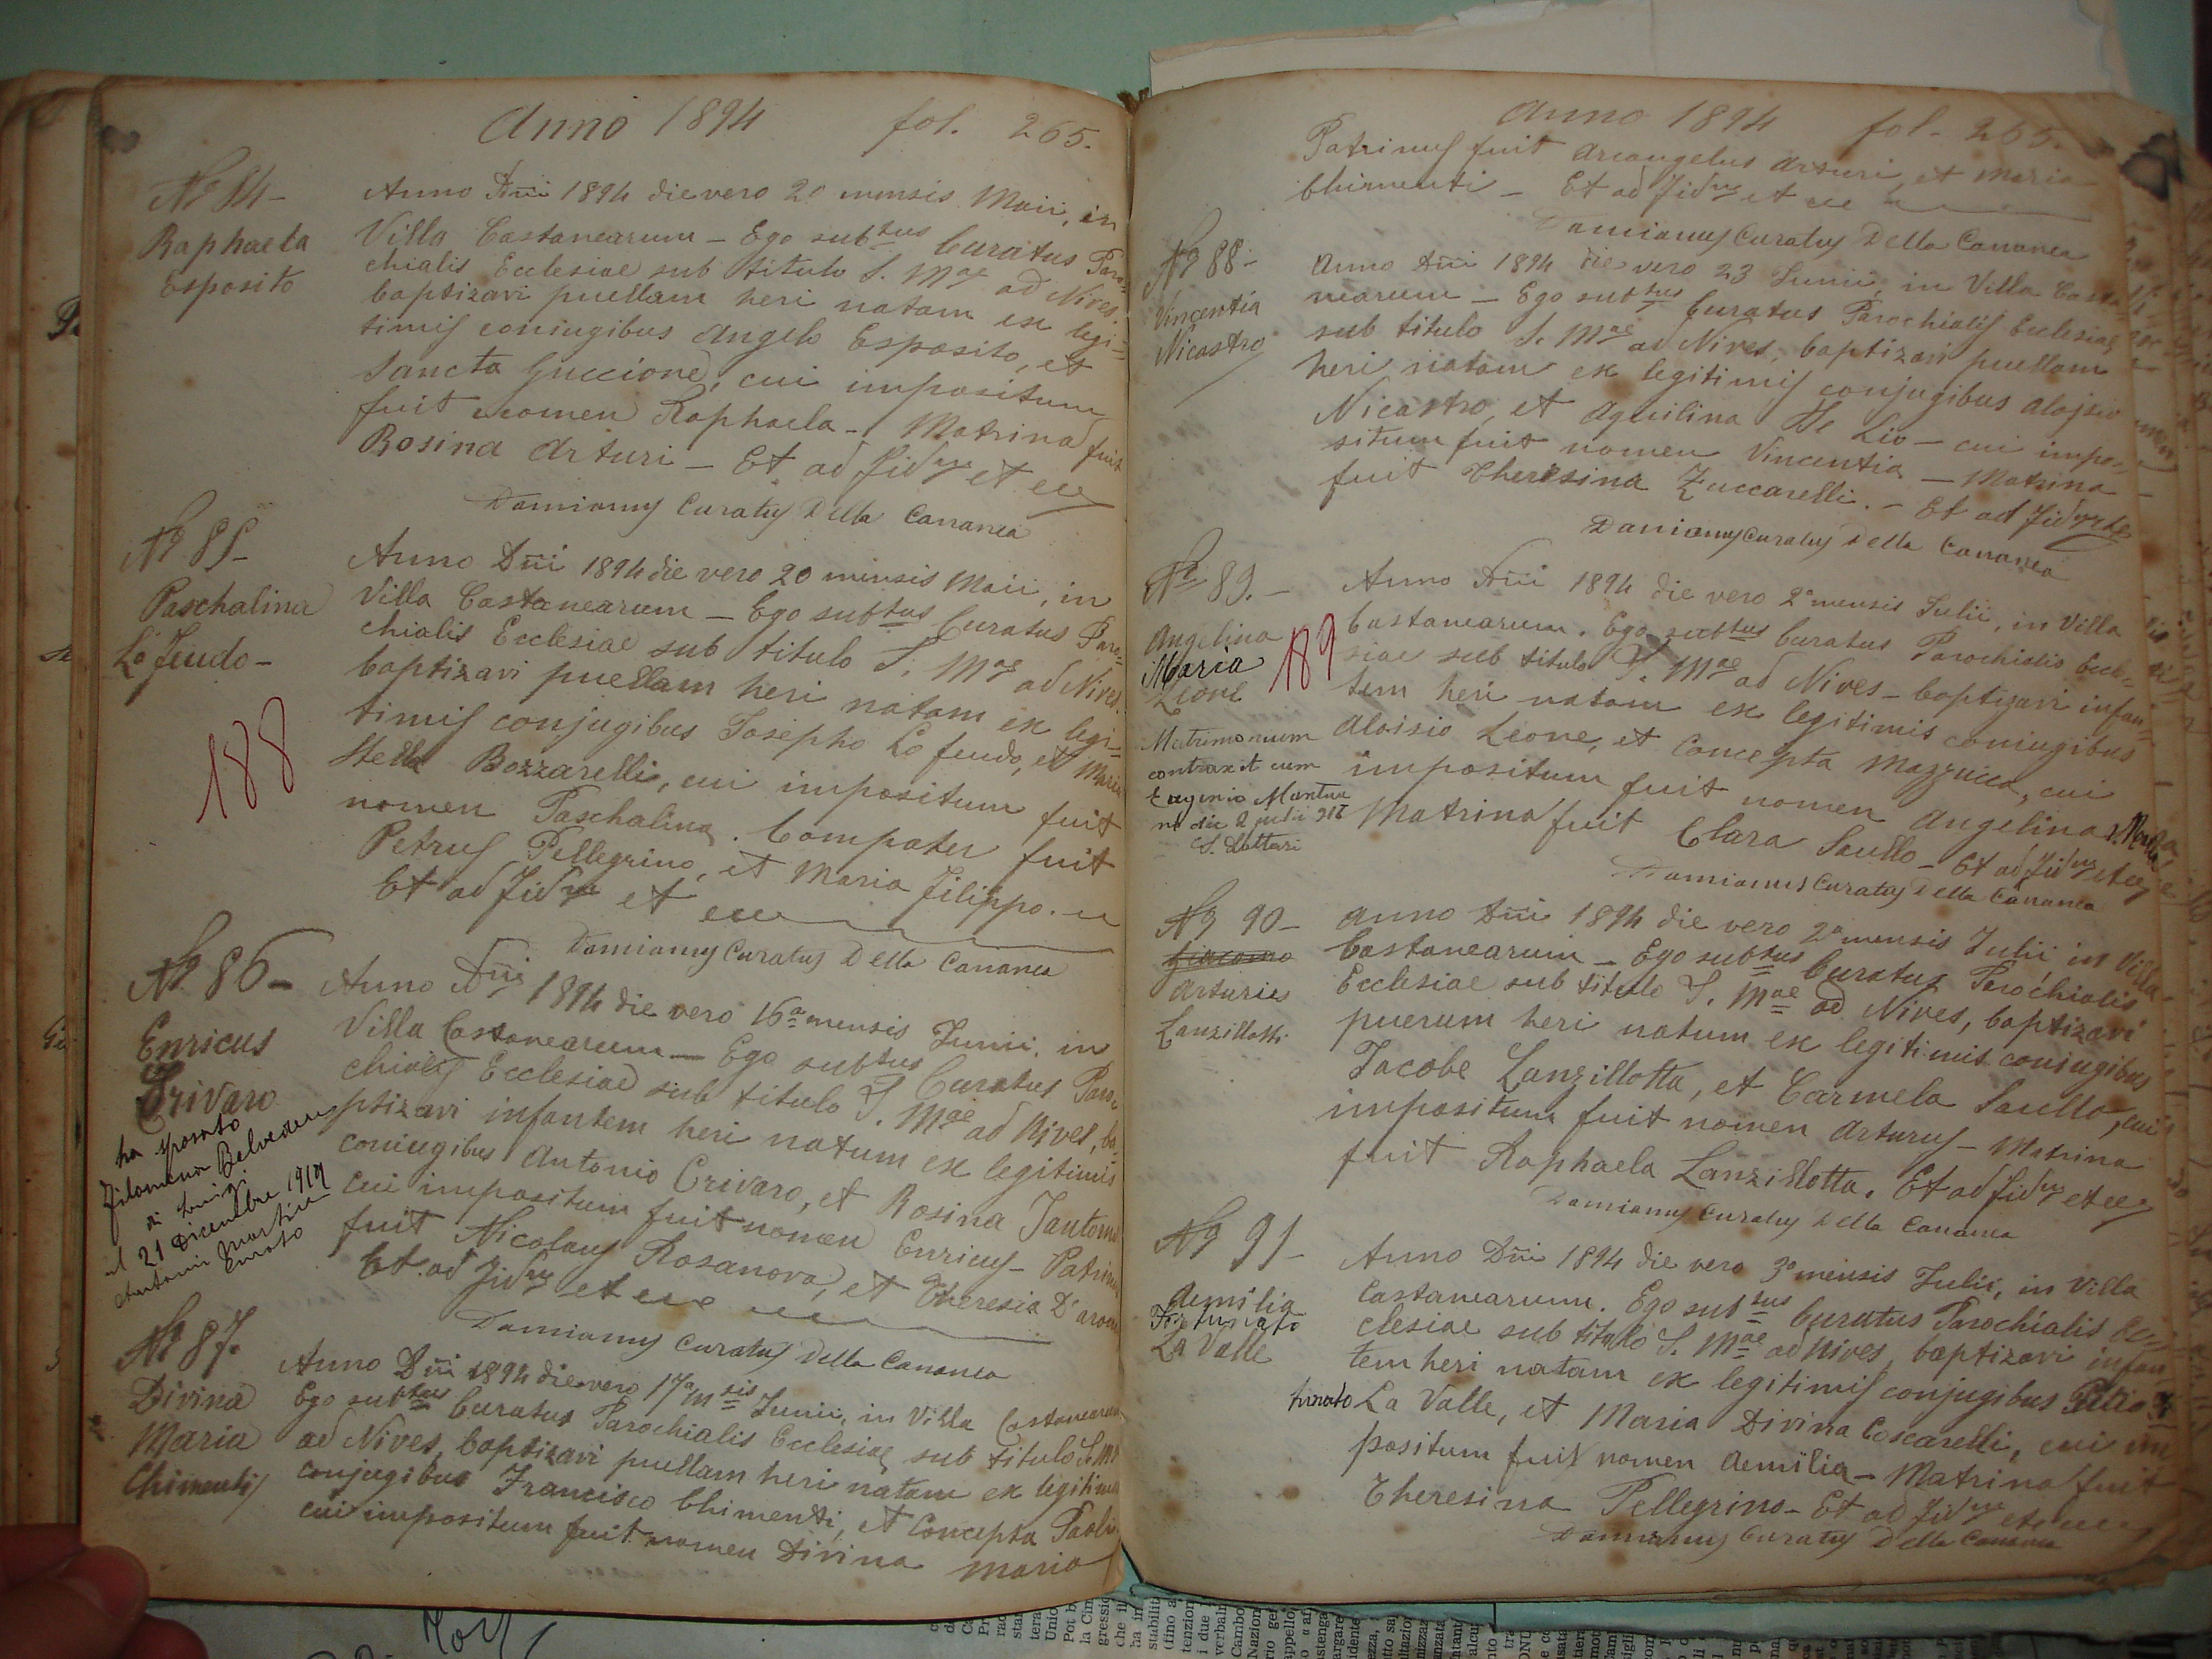 Anno 1894 fol. 265.
Nº 84-
Raphaela
Esposito
Anno Dñi 1894 die vero 20 mensis Maii, in
Villa Castanearum - Ego subtus Curatus Paro=
chialis Ecclesiae sub titulo S. Mae ad Nives
baptizavi puellam heri natam ex legi=
timis coniugibus Angelo Esposito, et
Sancta Guccione, cui impositum
fuit nomen Raphaela - Matrina fuit
Rosina Arturi - Et ad fid et
Damianus Curatus Della Cananea
Nº 85-
Paschalina
Lo feudo-
188
Anno Dñi 1894 die vero 20 mensis Maii, in
Villa Castanearum - Ego subtus Curatus Paro=
chialis Ecclesiae sub titulo S. Mae ad Nives.
baptizavi puellam heri natam ex legi=
timis conjugibus Josepho Lo feudo, et Maria
Stella Bozzarelli, cui impositum fuit
nomen Paschalina. Compater fuit
Petrus Pellegrino, et Maria Filippo.
Et ad fid et
Damianus Curatus Della Cananea
Nº 86-
Enricus
Crivaro
ha sposato
Filomena Belvedere
di Luigi
il 21 Dicembre 1919
Anno Dñi 1894 die vero 16a mensis Junii, in
Villa Castanearum - Ego subtus Curatus Paro=
chialis Ecclesiae sub titulo S. Mae ad Nives, ba=
ptizavi infantem heri natum ex legitimis
coniugibus Antonio Crivaro, et Rosina
cui impositum fuit nomen Enricus - Patrinus
fuit Nicolaus Rosanova, et Theresia
Et ad fid et
Damianus Curatus Della Cananea
Nº 87.
Divina
Maria
Chimenti
Anno Dñi 1894 die vero 17a msis Junii, in Villa Castanearum
Ego subtus Curatus Parochialis Ecclesiae sub titulo S. Mae
ad Nives, baptizavi puellam heri natam ex legitimis
conjugibus Francisco Chimenti, et Concepta
cui impositum fuit nomen Divina Maria
Anno 1894 fol. 265.
Patrinus fuit Arcangelus Arturi, et Maria
Chimenti - Et ad fid et
Damianus Curatus Della Cananea
Nº 88-
Vincentia
Nicastro
Anno Dñi 1894 die vero 23 Junii, in Villa Casta=
nearum - Ego subtus Curatus Parochialis Ecclesiae
sub titulo S. Mae ad Nives, baptizavi puellam
heri natam ex legitimis conjugibus Alojsio
Nicastro, et Aquilina De Lio - cui impo=
situm fuit nomen Vincentia - Matrina
fuit Theresina Zuccarelli. - Et ad fid
Damianus Curatus Della Cananea
Nº 89.-
Angelina
Maria
Leone
189
Matrimonium
contraxit cum
Eugenio
die 2 julii
Anno Dñi 1894 die vero 2a mensis Julii, in Villa
Castanearum. Ego subtus Curatus Parochialis Eccle=
siae sub titulo S. Mae ad Nives - baptizavi infan=
tem heri natam ex legitimis coniugibus
Aloisio Leone, et Concepta Mazzuca, cui
impositum fuit nomen Angelina, Maria
Matrina fuit Clara Saullo - Et ad fid
Damianus Curatus Della Cananea
Nº 90-
Giacomo
Arturus
Lanzillotti
Anno Dñi 1894 die vero 2a mensis Julii in Villa
Castanearum - Ego subtus Curatus Parochialis
Ecclesiae sub titulo S. Mae ad Nives, baptizavi
puerum heri natum ex legitimis coniugibus
Jacobe Lanzillotta, et Carmela Saullo, cui
impositum fuit nomen Arturus - Matrina
fuit Raphaela Lanzillotta. Et ad fid
Damianus Curatus Della Cananea
Nº 91-
Aemilia
Fortunato
La Valle
Anno Dñi 1894 die vero 3a mensis Julii, in Villa
Castanearum. Ego subtus Curatus Parochialis Ec=
clesiae sub titulo S. Mae ad Nives, baptizavi infan
tem heri natam ex legitimis conjugibus
tunato La Valle, et Maria Divina Coscarelli, cui im
positum fuit nomen Aemilia - Matrina fuit
Theresina Pellegrino - Et ad fid
Damianus Curatus Della Cananea